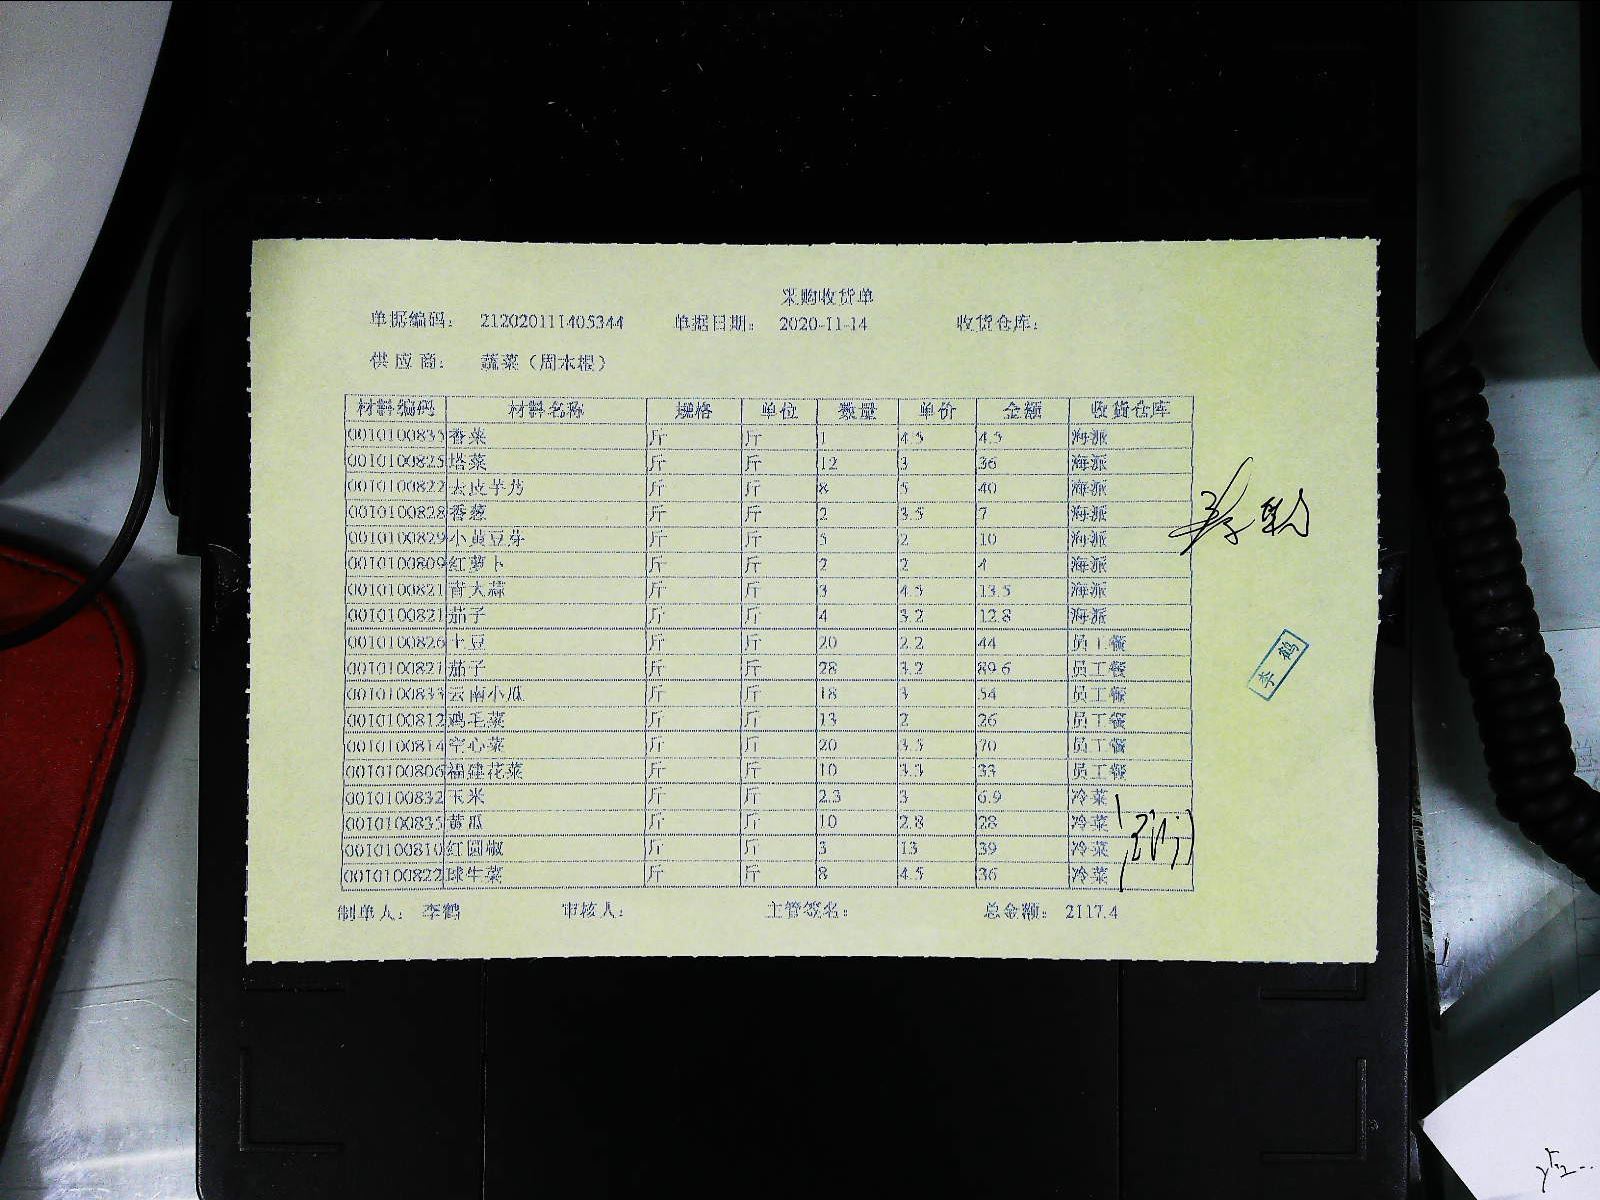 采购收货单
单据编码： 212020111405344 单据日期： 2020-11-14 收货仓库：
供应商： 蔬菜（周本根）
材料编码 材料名称 规格 单位 数量 单价 金额 收货仓库
0010100835 香菜 斤 斤 1 4.5 4.5 海派
0010100825 塔菜 斤 斤 12 3 36 海派
0010100822 去皮芋艿 斤 斤 8 5 40 海派
0010100828 香葱 斤 斤 2 3.5 7 海派
0010100829 小黄豆芽 斤 斤 5 2 10 海派
0010100809 红萝卜 斤 斤 2 2 4 海派
0010100821 青大蒜 斤 斤 3 4.5 13.5 海派
0010100821 茄子 斤 斤 4 3.2 12.8 海派
0010100826 土豆 斤 斤 20 2.2 44 员工餐
0010100821 茄子 斤 斤 28 3.2 89.6 员工餐
0010100833 云南小瓜 斤 斤 18 3 54 员工餐
0010100812 鸡毛菜 斤 斤 13 2 26 员工餐
0010100814 空心菜 斤 斤 20 3.5 70 员工餐
0010100806 福建花菜 斤 斤 10 3.3 33 员工餐
0010100832 玉米 斤 斤 2.3 3 6.9 冷菜
0010100835 黄瓜 斤 斤 10 2.8 28 冷菜
0010100810 红圆椒 斤 斤 3 13 39 冷菜
0010100822 球生菜 斤 斤 8 4.5 36 冷菜
制单人： 李鹤 审核人： 主管签名： 总金额： 2117.4
李鹤